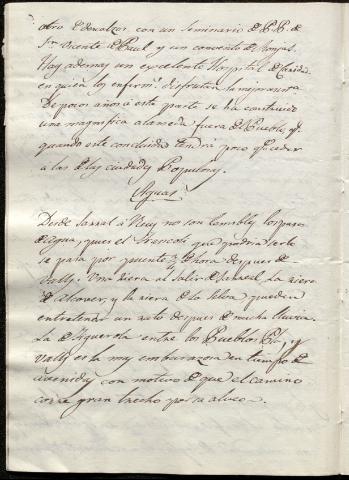 otro de Descalzos, con un Seminario de P.P. de
Sn. Vicente de Paul y un convento de Monjas.
Hay ademas un excelente Hospital de Caridad
en quien los enferms. disfrutan la mejor asista.
De pocos años a esta parte se ha construido
una magnifica alameda fuera del Pueblo, q.
quando esté concluida tendra poco que ceder
a las de las ciudades Populosas.
Aguas
Desde Sarral á Reus no son temibles los pasos
de agua, pues el Francolí que podria serlo
se pasa por puente ½ de hora despues de
Valls. Una riera al salir de Sarral, la riera
de Alcover, y la riera de la Selva pueden
entretener un rato despues de mucha lluvia.
La de Figuerola entre los Pueblos Pla, y
Valls es la muy embarazosa en tiempo de
avenidas con motivo de que el camino
corre gran trecho por su alveo.